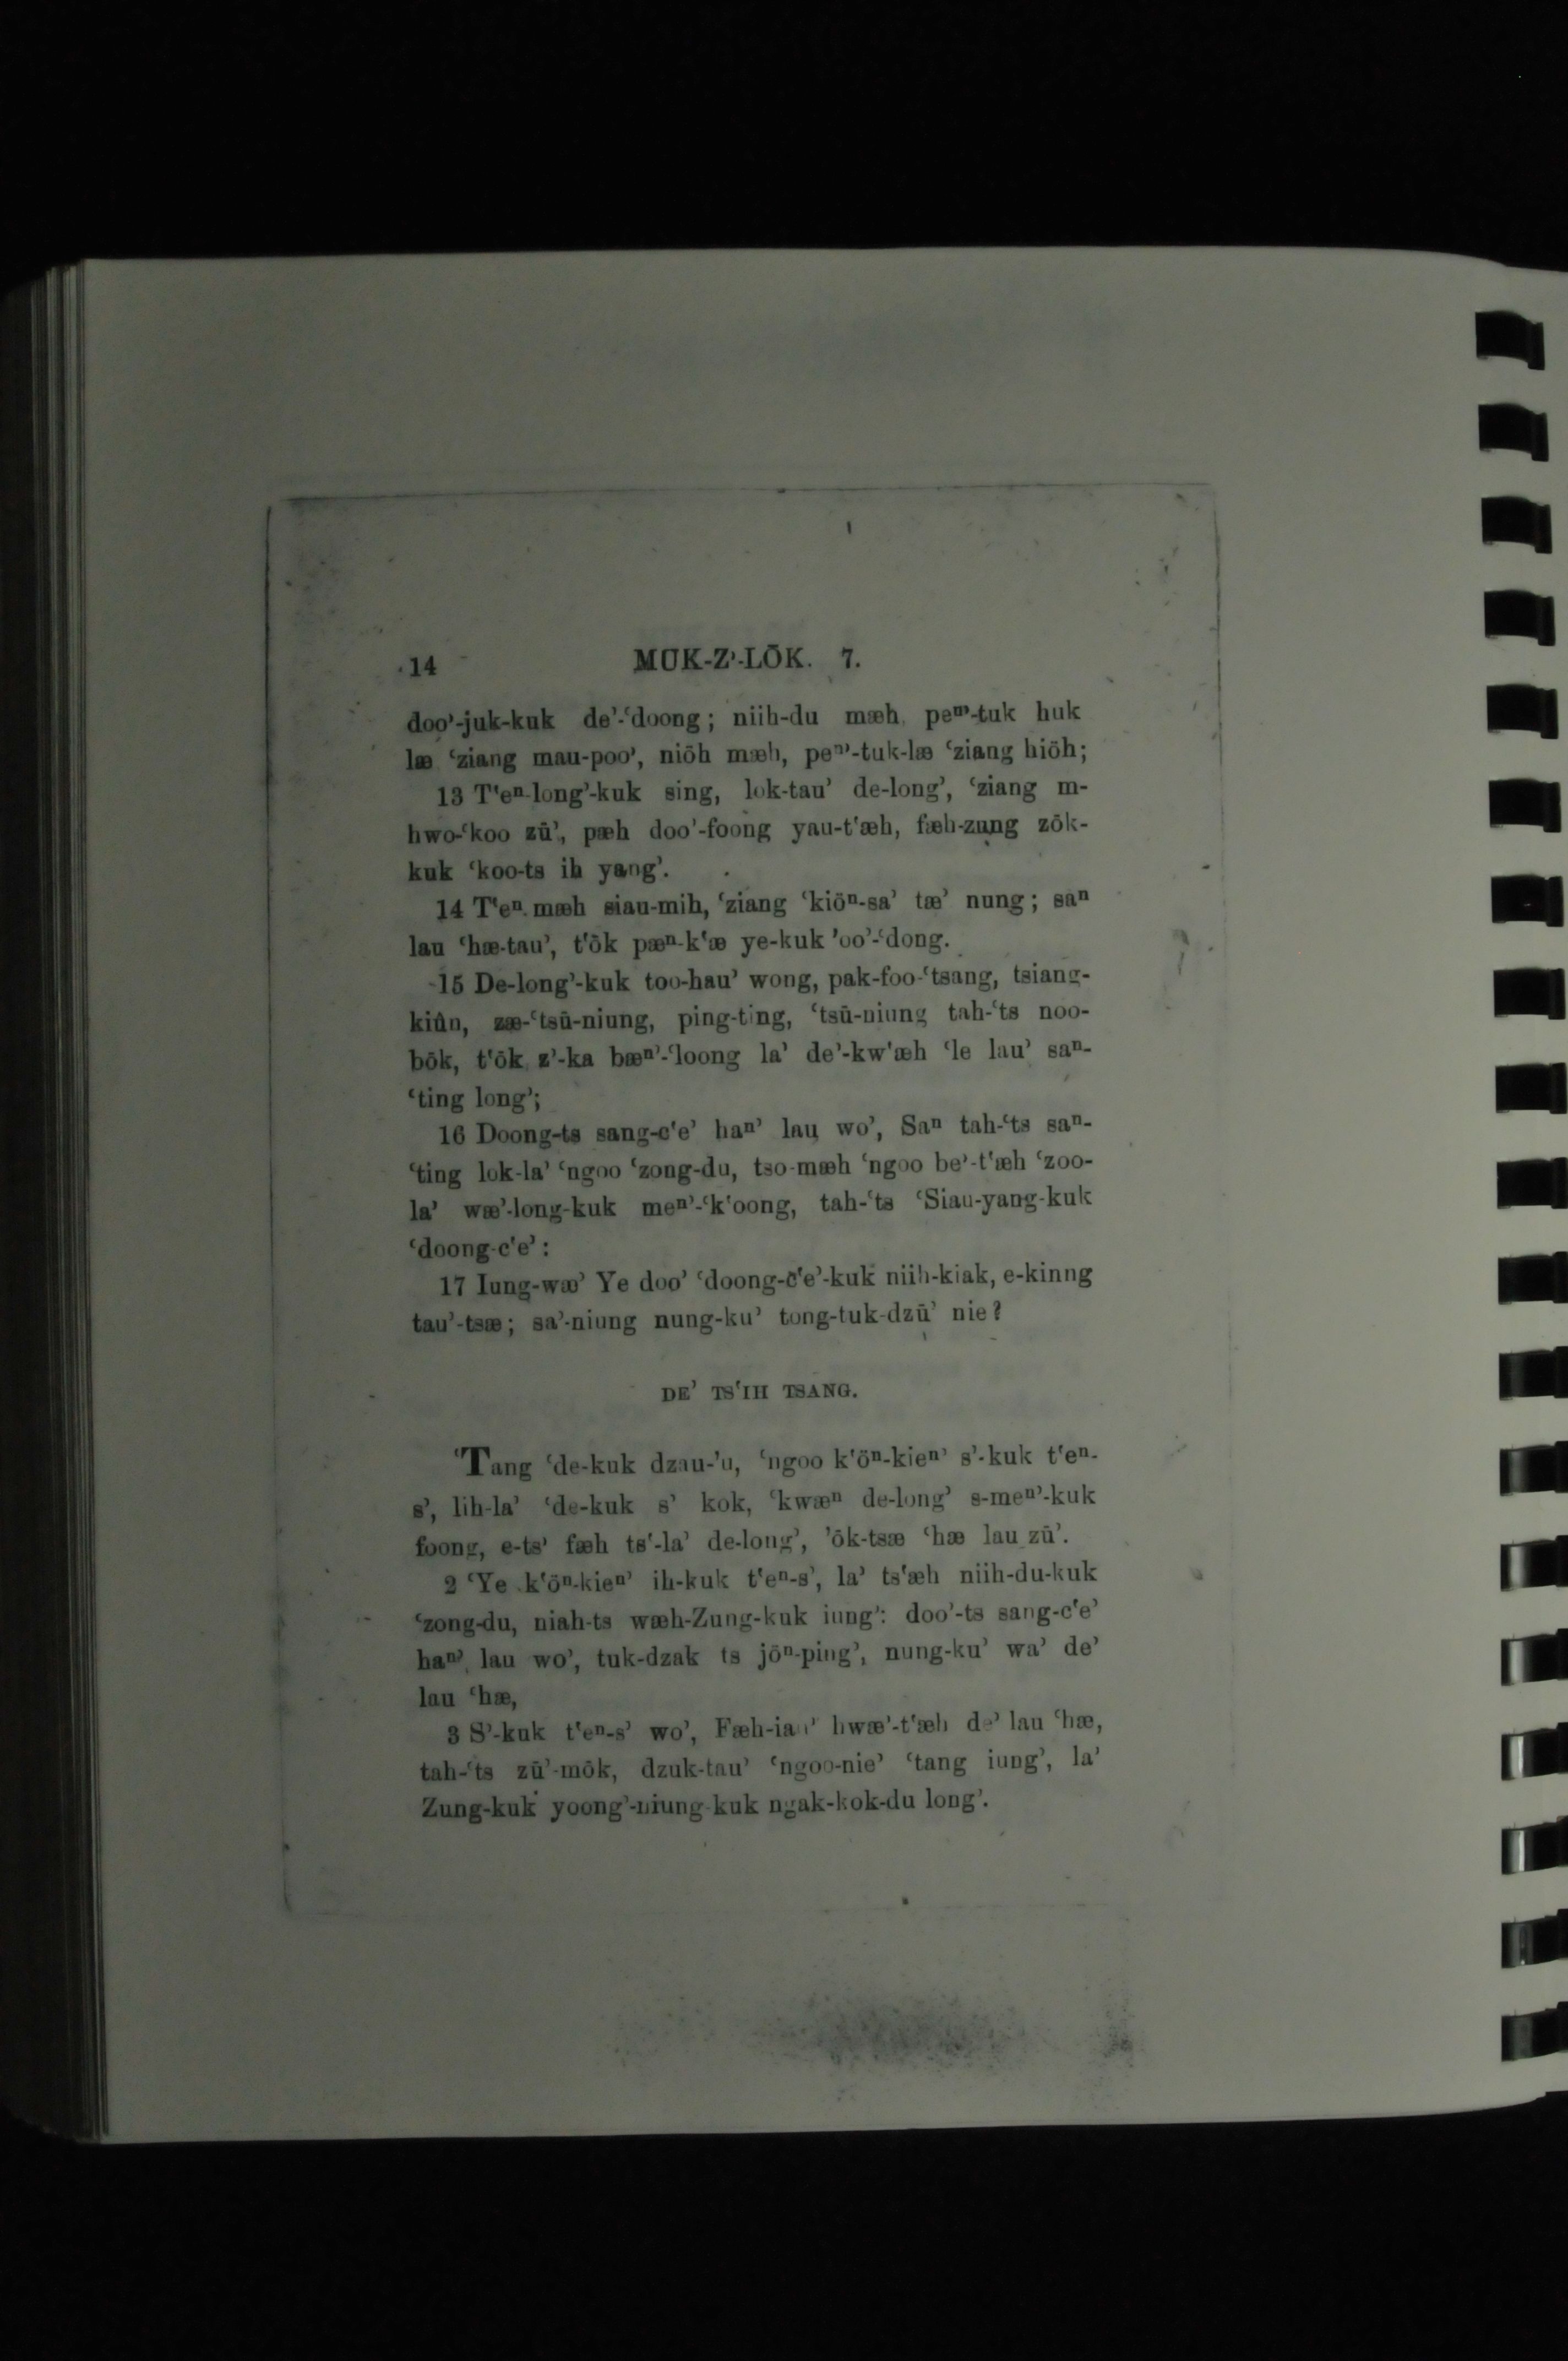 14 MŪK-Z’-LŌK. 7.
doo’-juk-kuk de’-‘doong; niih-du mæh peⁿ’-tuk huk
læ ‘ziang mau-poo’, niöh mæh, peⁿ’-tuk-læ ‘ziang hiöh;
13 T‘eⁿ-long’-kuk sing, lok-tau’ de-long’, ‘ziang m-
hwo-‘koo zū’, pæh doo’-foong yau-t‘æh, fæh-zung zōk-
kuk ‘koo-ts ih yang’.
14 T‘eⁿ mæh siau-mih, ‘ziang ‘kiöⁿ-sa’ tæ’ nung; saⁿ
lau ‘hæ-tau’, t‘ōk pæⁿ-k‘æ ye-kuk ’oo’-‘dong.
15 De-long’-kuk too-hau’ wong, pak-foo-‘tsang, tsiang-
kiûn, zæ-‘tsū-niung, ping-ting, ‘tsū-niung tah-‘ts noo-
bōk, t‘ōk z’-ka bæⁿ’-‘loong la’ de’-kw‘æh ‘le lau’ saⁿ-
‘ting long’;
16 Doong-ts sang-c‘e’ haⁿ’ lau wo’, Saⁿ tah-‘ts saⁿ-
‘ting lok-la’ ‘ngoo ‘zong-du, tso-mæh ‘ngoo be’-t‘æh ‘zoo-
la’ wæ’-long-kuk meⁿ’-‘k‘oong, tah-‘ts ‘Siau-yang-kuk
‘doong-c‘e’:
17 Iung-wæ’ Ye doo’ ‘doong-c‘e’-kuk niih-kiak, e-kinng
tau’-tsæ; sa’-niung nung-ku’ tong-tuk-dzū’ nie?
DE’ TS‘IH TSANG.
‘Tang ‘de-kuk dzau-’u, ‘ngoo k‘öⁿ-kieⁿ’ s’-kuk t‘eⁿ-
s’, lih-la’ ‘de-kuk s’ kok, ‘kwæⁿ de-long’ s-meⁿ’-kuk
foong, e-ts’ fæh ts‘-la’ de-long’, ’ōk-tsæ ‘hæ lau zū’.
2 ‘Ye k‘öⁿ-kieⁿ’ ih-kuk t‘eⁿ-s’, la’ ts‘æh niih-du-kuk
‘zong-du, niah-ts wæh-Zung-kuk iung’: doo’-ts sang-c‘e’
haⁿ’ lau wo’, tuk-dzak ts jöⁿ-ping’, nung-ku’ wa’ de’
lau ‘hæ,
3 S’-kuk t‘eⁿ-s’ wo’, Fæh-iau’ hwæ’-t‘æh de’ lau ‘hæ,
tah-‘ts zū’-mōk, dzuk-tau’ ‘ngoo-nie’ ‘tang iung’, la’
Zung-kuk yoong’-niung-kuk ngak-kok-du long’.